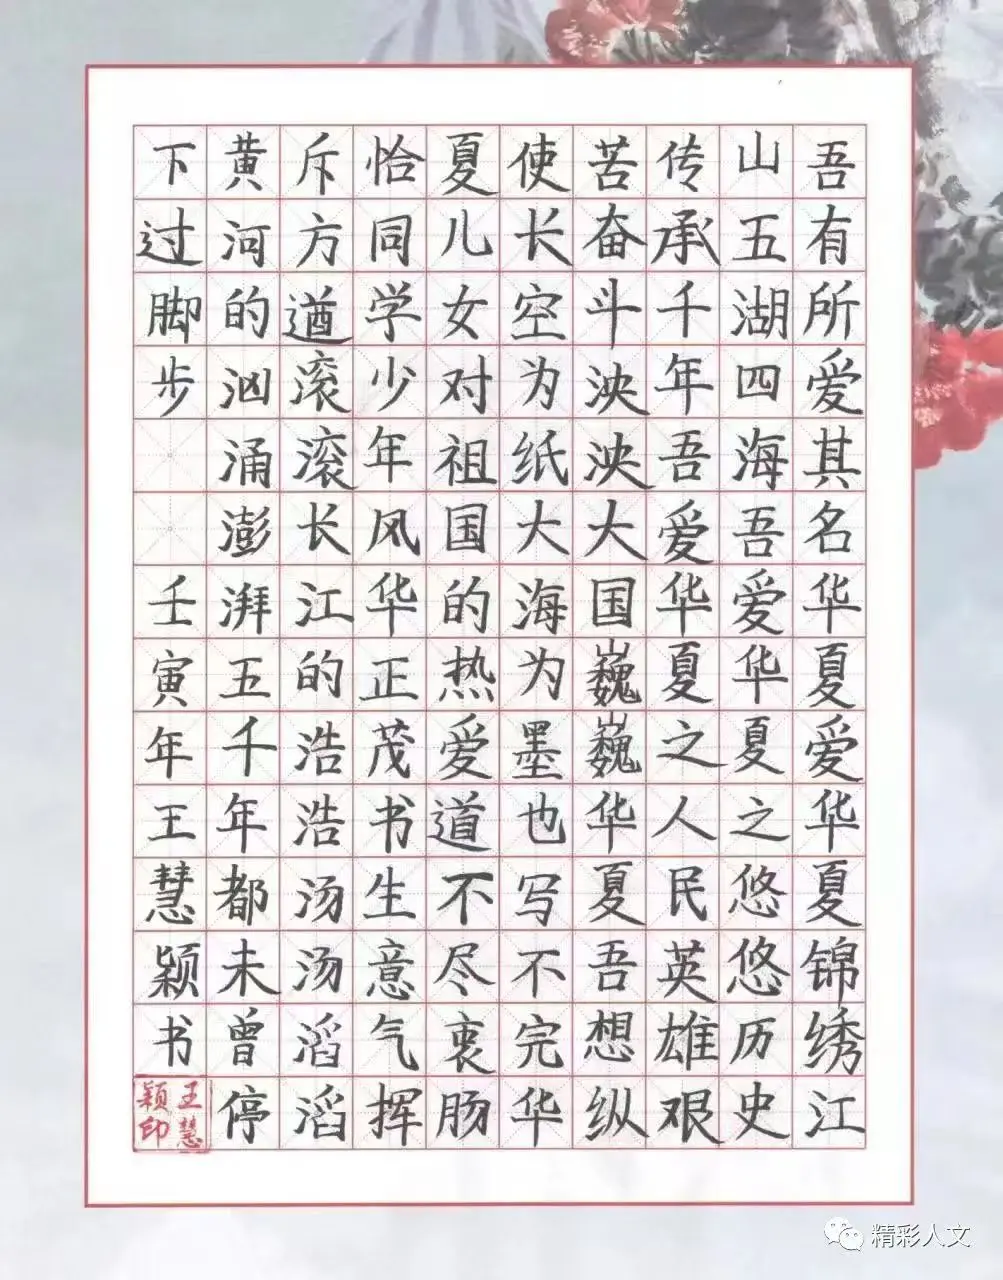 吾有所爱其名华夏爱华夏锦绣江
山五湖四海吾爱华夏之悠悠历史
传承千年吾爱华夏之人民英雄艰
苦奋斗泱泱大国巍巍华夏吾想纵
使长空为纸大海为墨也写不完华
夏儿女对祖国的热爱道不尽衷肠
恰同学少年风华正茂书生意气挥
斥方遒滚滚长江的浩浩汤汤滔滔
黄河的汹涌澎湃五千年都未曾停
下过脚步 壬寅年王慧颖书
王慧颖印
精彩人文